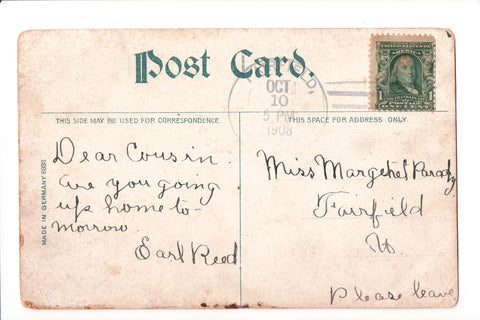 Post Card.
OCT
10
5 PM
1908
THIS SIDE MAY BE USED FOR CORRESPONDENCE.
THIS SPACE FOR ADDRESS ONLY.
MADE IN GERMANY
Dear Cousin.
Are you going
up home to-
morrow.
Earl Reed
Miss Margehet
Fairfield
Vt.
Please leave